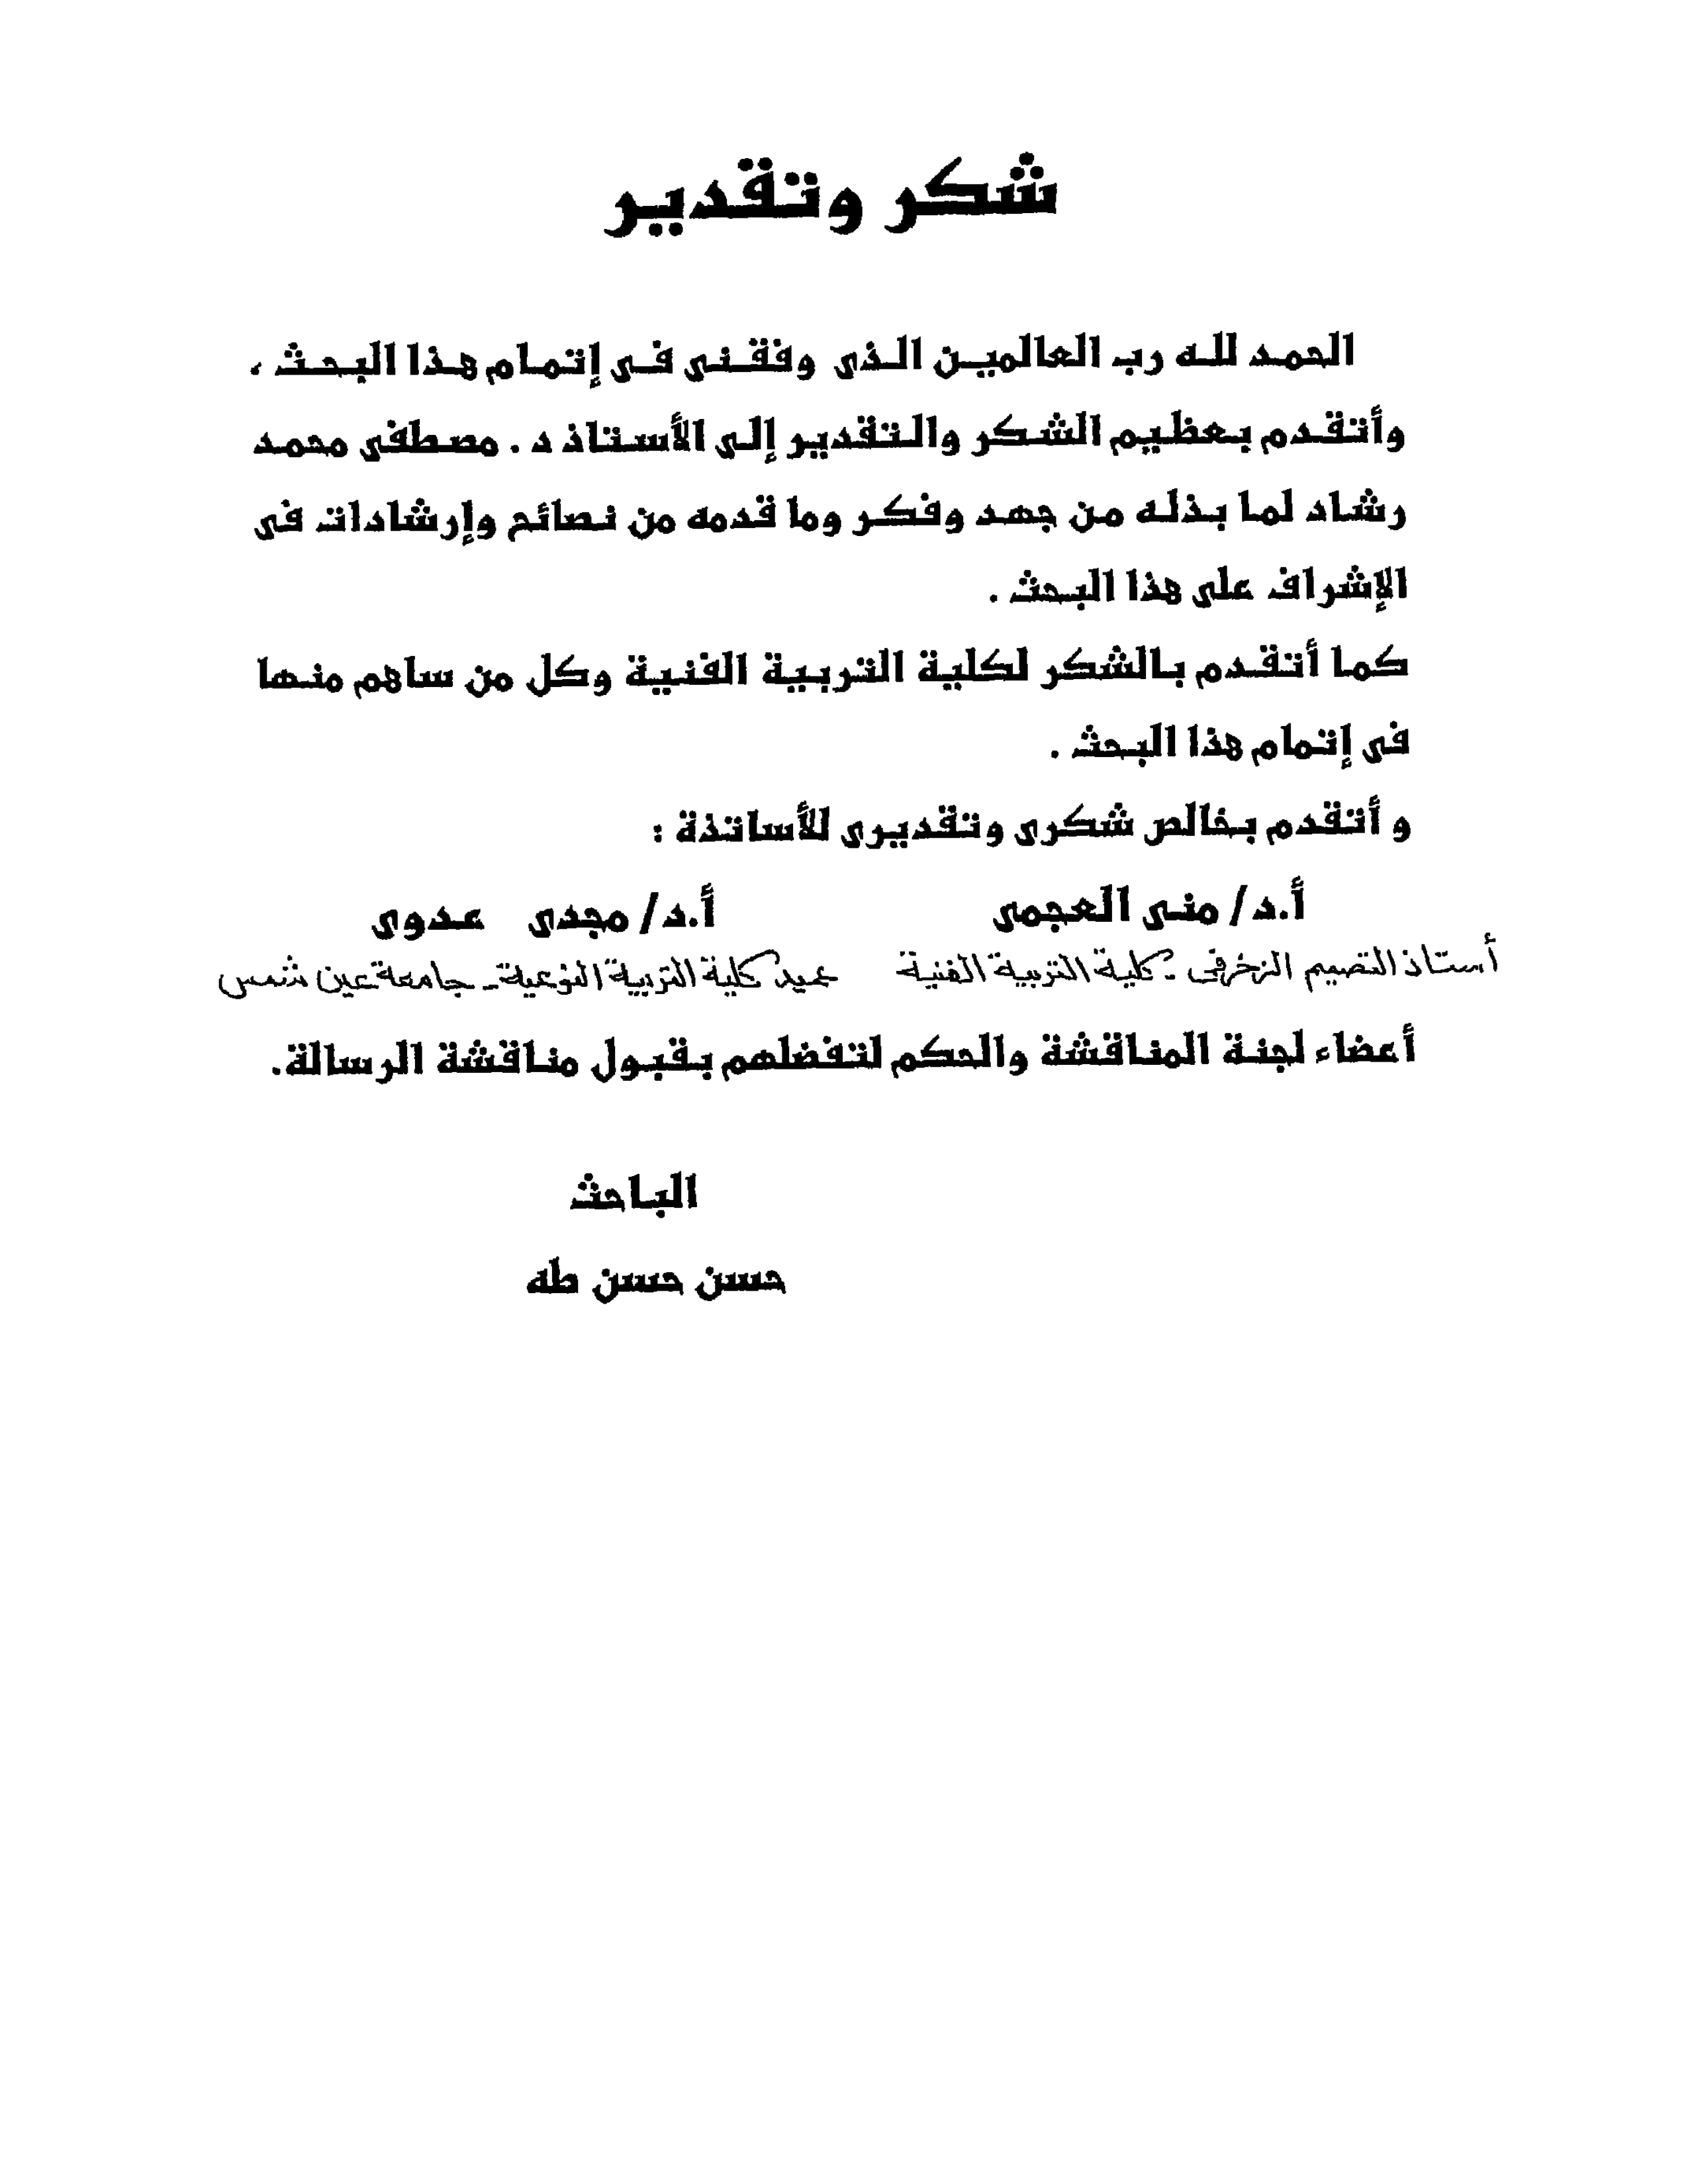 شكر وتقدير
الحمد لله رب العالمين الذى وفقنى فى إتمام هذا البحث ،
وأتقدم بعظيم الشكر والتقدير إلى الأستاذ د . مصطفى محمد
رشاد لما بذله من جهد وفكر وما قدمه من نصائح وإرشادات فى
الإشراف على هذا البحث .
كما أتقدم بالشكر لكلية التربية الفنية وكل من ساهم منها
فى إتمام هذا البحث .
و أتقدم بخالص شكرى وتقديرى للأساتذة :
أ.د/ منى العجمى أ.د/ مجدى عدوى
أستاذ التصميم الزخرفى - كلية التربية الفنية عميد كلية التربية النوعية - جامعة عين شمس
أعضاء لجنة المناقشة والحكم لتفضلهم بقبول مناقشة الرسالة.
الباحث
حسن حسن طه